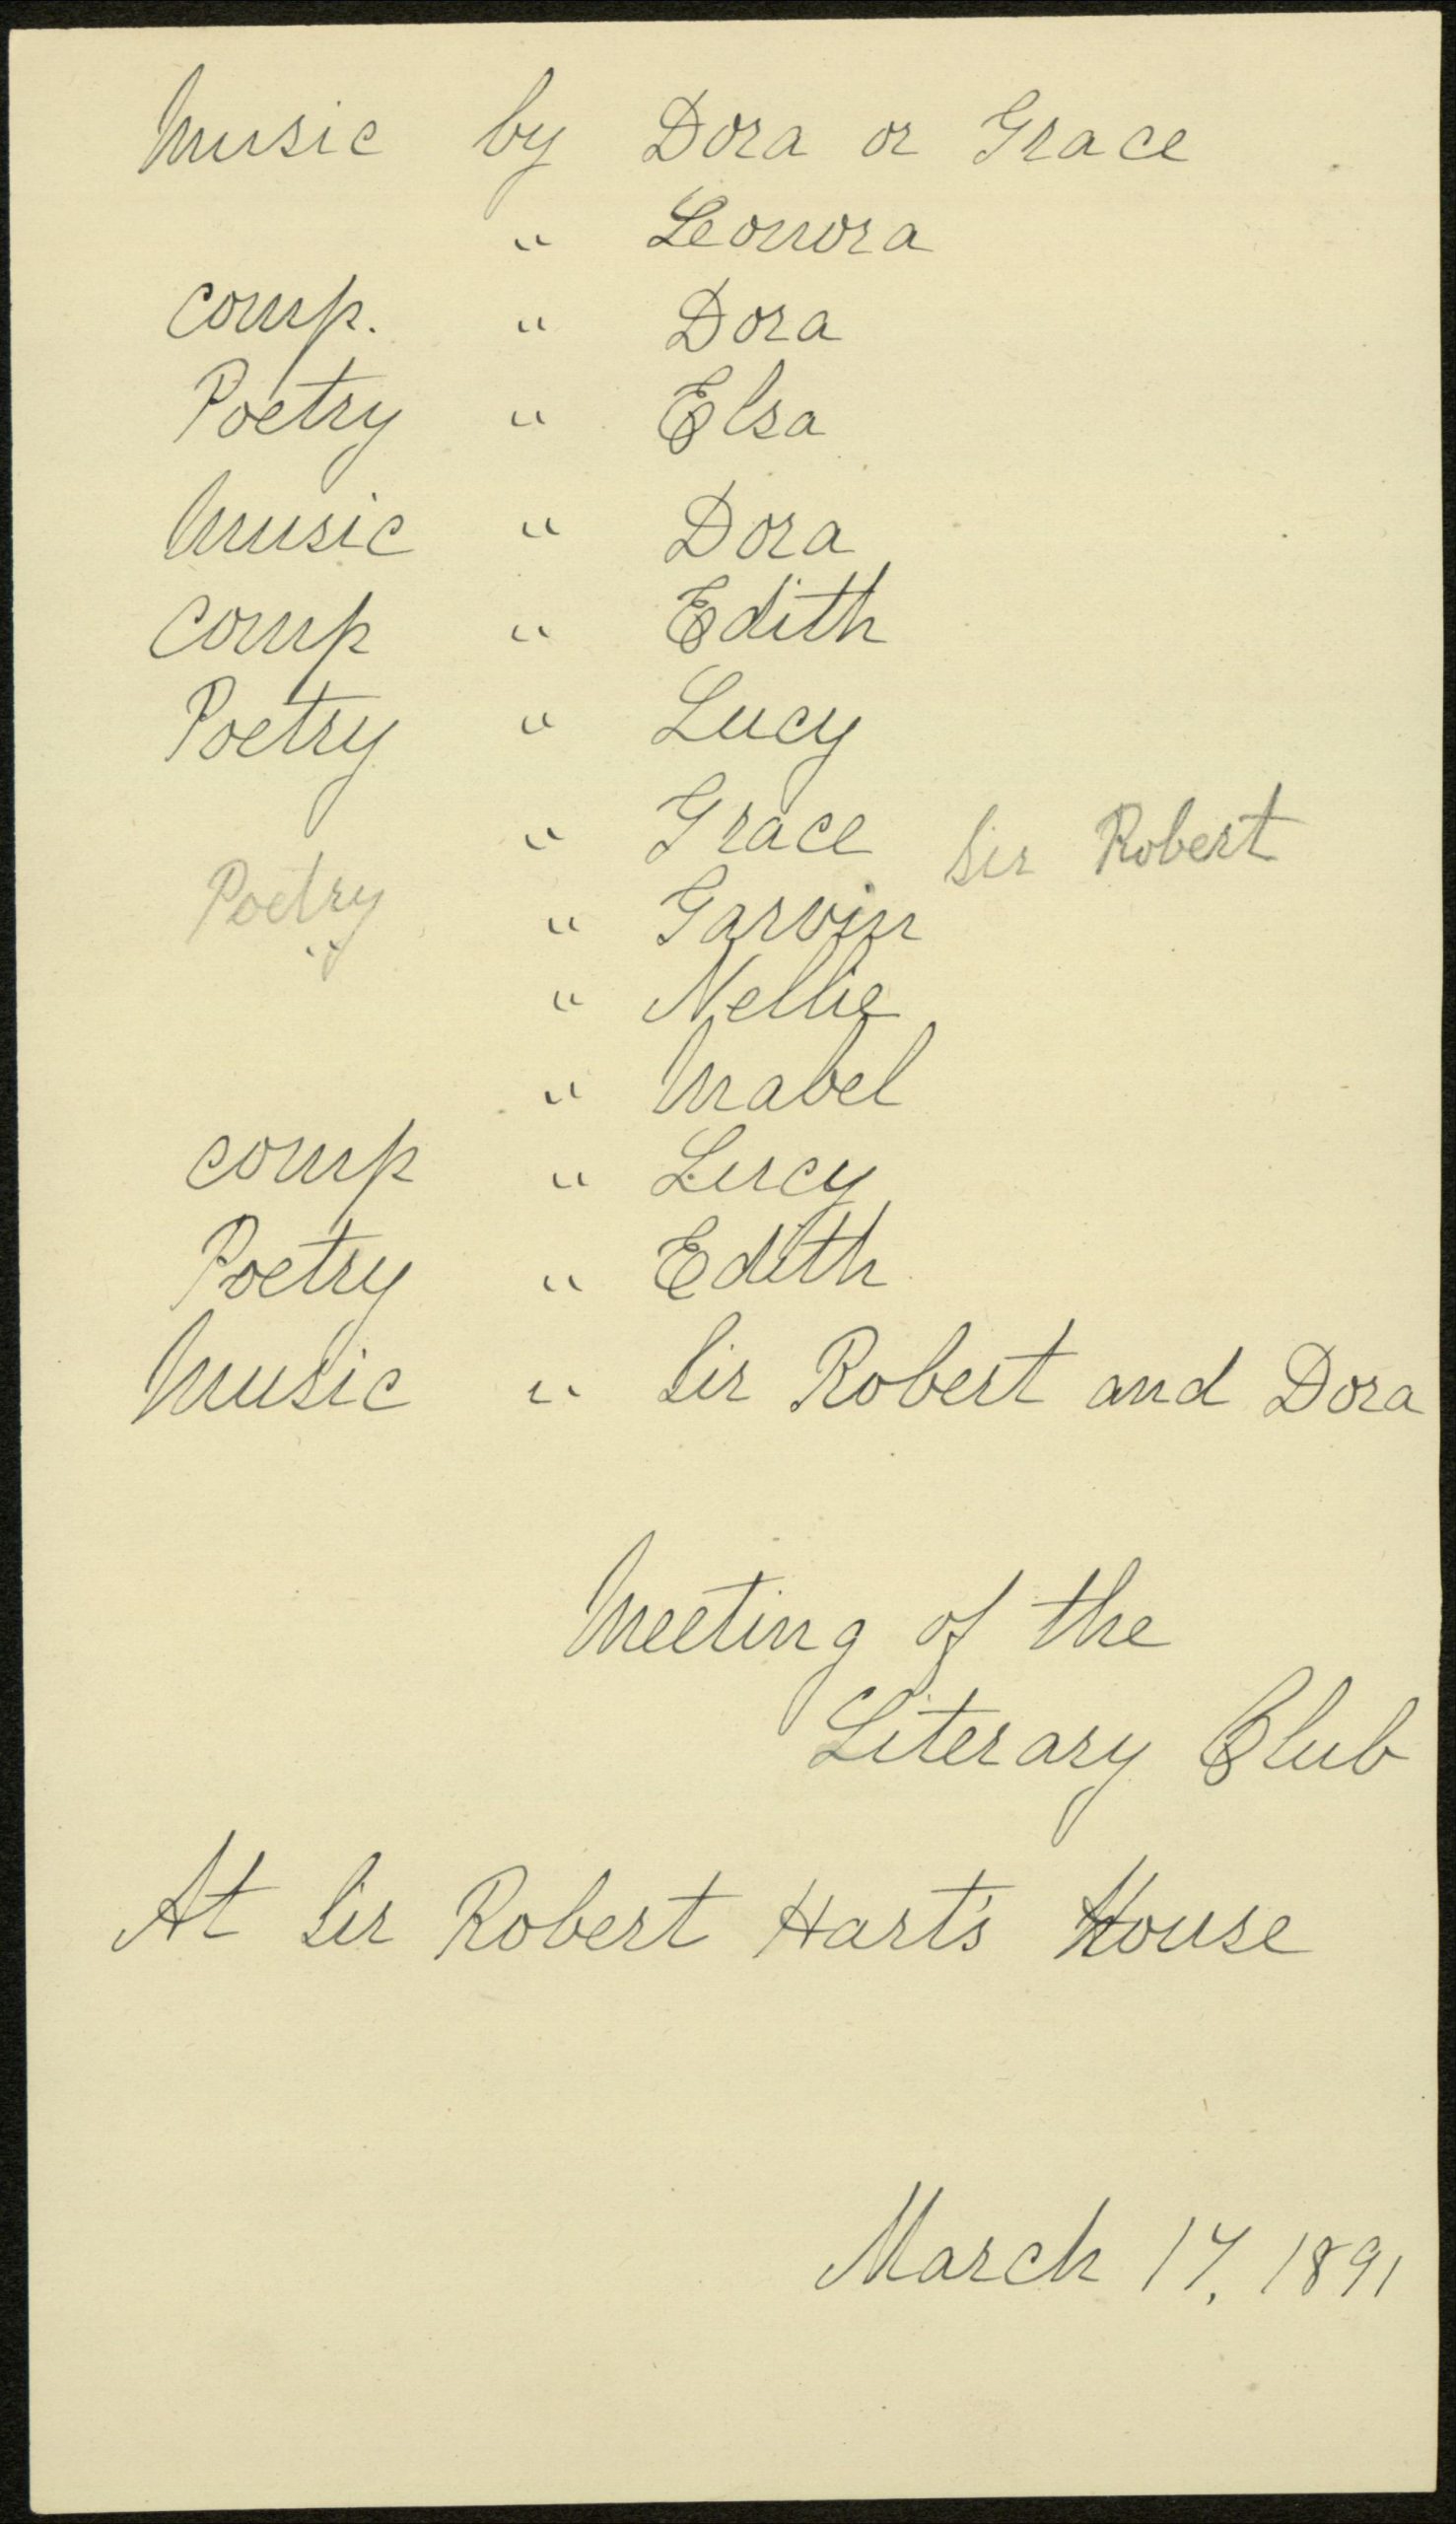 Music by Dora or Grace
" Leonora
comp. " Dora
Poetry " Elsa
Music " Dora
comp " Edith
Poetry " Lucy
" Grace Sir Robert
Poetry " Garvin
" " Nellie
" Mabel
comp " Lucy
Poetry " Edith
Music " Sir Robert and Dora
Meeting of the
Literary Club
At Sir Robert Hart's House
March 17, 1891